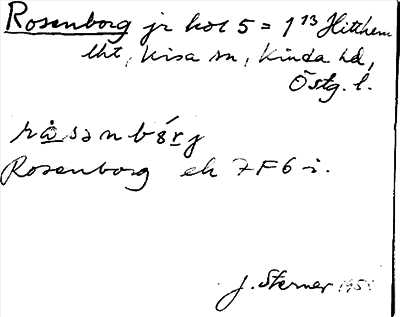 Rosenborg jr kol 5 = 1 13 Hitthem
lht, Kisa sn, Kinda hd,
Östg. l.
råsənbórj
Rosenborg ek 7F6-i.
J. Sterner 195